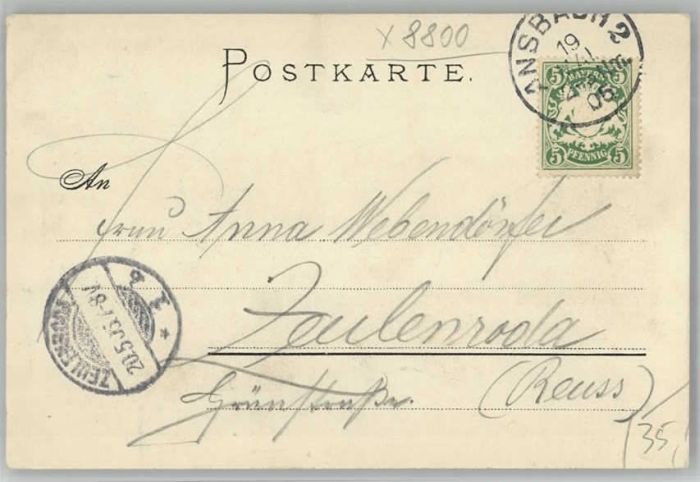 x 8800
POSTKARTE.
ANSBACH 2
19
06
BAYERN
5 5
5 PFENNIG 5
An
Frau Anna Webendörfer
Zeulenroda
(Reuss)
Grünstraße.
ZEULENRODA
20.5.06.7-8V
35,